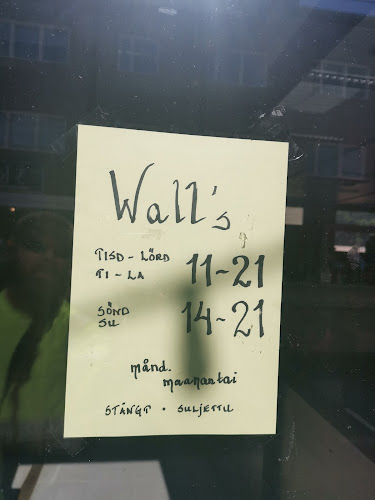 Wall's
TISD - LÖRD 11-21
TI - LA
SÖND 14-21
SU
månd.
maanantai
STÄNGT · SULJETTU